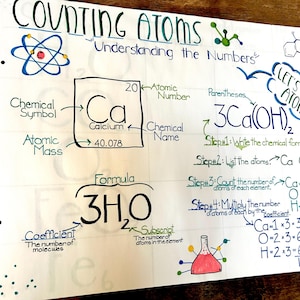 COUNTING ATOMS
Understanding the Numbers
20
Atomic
Number
Chemical
Symbol
Ca
Calcium
Chemical
Name
Atomic
Mass
40.078
Formula
3H₂O
Coefficient
The number of
molecules
Subscript
The number of
atoms in the element
LET'S
Parentheses
3Ca(OH)₂
Step #1: Write the chemical form
Step #2: List the atoms
Ca
Step #3: Count the number of
atoms of each element.
Ca
Step #4: Multiply the number
of atoms by the
coefficient
Ca-1×3=
O-2×3=
H-2×3=